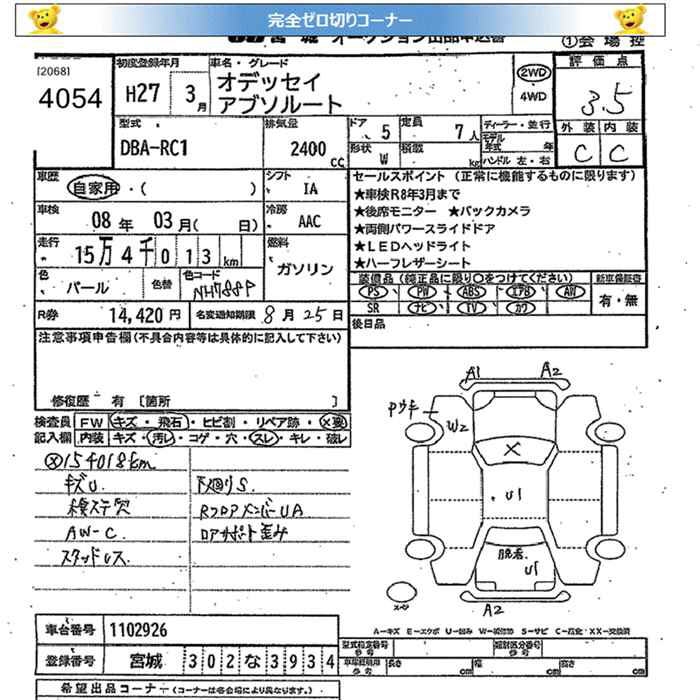 完全ゼロ切りコーナー
宮城 オークション出品申込書
①会場控
[2068]
4054
初度登録年月
H27 3月
車名・グレード
オデッセイ
アブソルート
2WD
4WD
評価点
3.5
外装 内装
C C
型式
DBA-RC1
排気量
2400cc
ドア 5 定員 7人
形状 W 積載 kg
ディーラー・並行
モデル年式 年
ハンドル 左・右
車歴
自家用・( )
シフト IA
車検
08年 03月( 日)
冷房 AAC
走行
15万4千013km
燃料
ガソリン
色
パール
色替
色コード
NH788P
R券 14,420円 名変通知期限 8月25日
セールスポイント (正常に機能するものに限ります)
★車検R8年3月まで
★後席モニター ★バックカメラ
★両側パワースライドドア
★LEDヘッドライト
★ハーフレザーシート
装備品(純正品に限り〇をつけてください)
新車保証書
PS PW ABS エアB AW
SR ナビ TV カワ
有・無
後日品
注意事項申告欄(不具合内容等は具体的に記入して下さい)
修復歴 有 [箇所 ]
検査員
記入欄
FW キズ・飛石・ヒビ割・リペア跡・X要
内装 キズ・汚レ・コゲ・穴・スレ・キレ・破レ
154018km
キズU.
検ステ欠
AW-C.
スタッドレス.
下廻りS.
RフロアメンバーUA
ロアサポート歪み
A1 A2
Pウキ
W2
X
U1
脱着
U1
A2
スペア
A-キズ E-エクボ U-凹み W-補修跡 S-サビ C-腐食・XX-交換済
車台番号 1102926
登録番号 宮城 302な3934
型式指定番号
参考
類別区分番号
参考
長さ cm 幅 cm 高さ cm
希望出品コーナー(コーナーは各会場により異なります。)